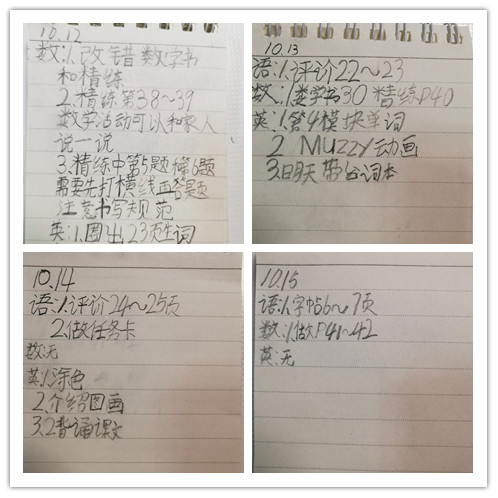 10.12
数:1.改错数学书
和精练
2.精练第38~39
数学活动可以和家人
说一说
3.精练中第5题和第6题
需要先打横线再答题
注意书写规范
英:1.圈出23页生词
10.13
语:1.评价22~23
数:1.数学书30 精练P40
英:1.第4模块单词
2 Muzzy动画
3.明天带台词本
10.14
语:1.评价24~25页
2.做任务卡
数:无
英:1.涂色
2.介绍图画
3.2背诵课文
10.15
语:1.字帖6~7页
数:1.做P41~42
英:无